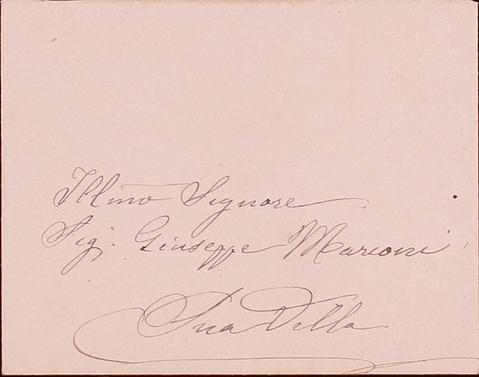 Illmo Signore
Sig. Giuseppe Marconi
Sua Villa